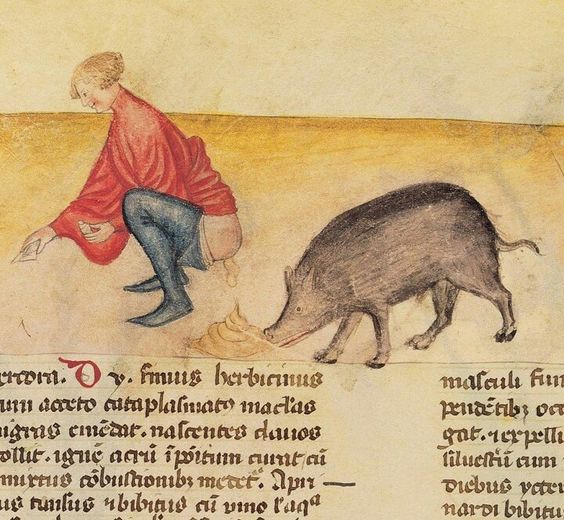 ercora. D y. fimus berbicinus
um aceto cataplasmatꝰ maclas
nigras emēdat. nascentes clauos
ollit. ignē acrū īpōitum curat cū
mixtus cōbustionibꝫ medet᷑. Apri
us tunsus ⁊ bibitus cū uino ł aqᵃ
masculi fim
pendētibꝫ occ
gat. ⁊ expelli
siluestriū cum
diebus ycter
nardi bibitu